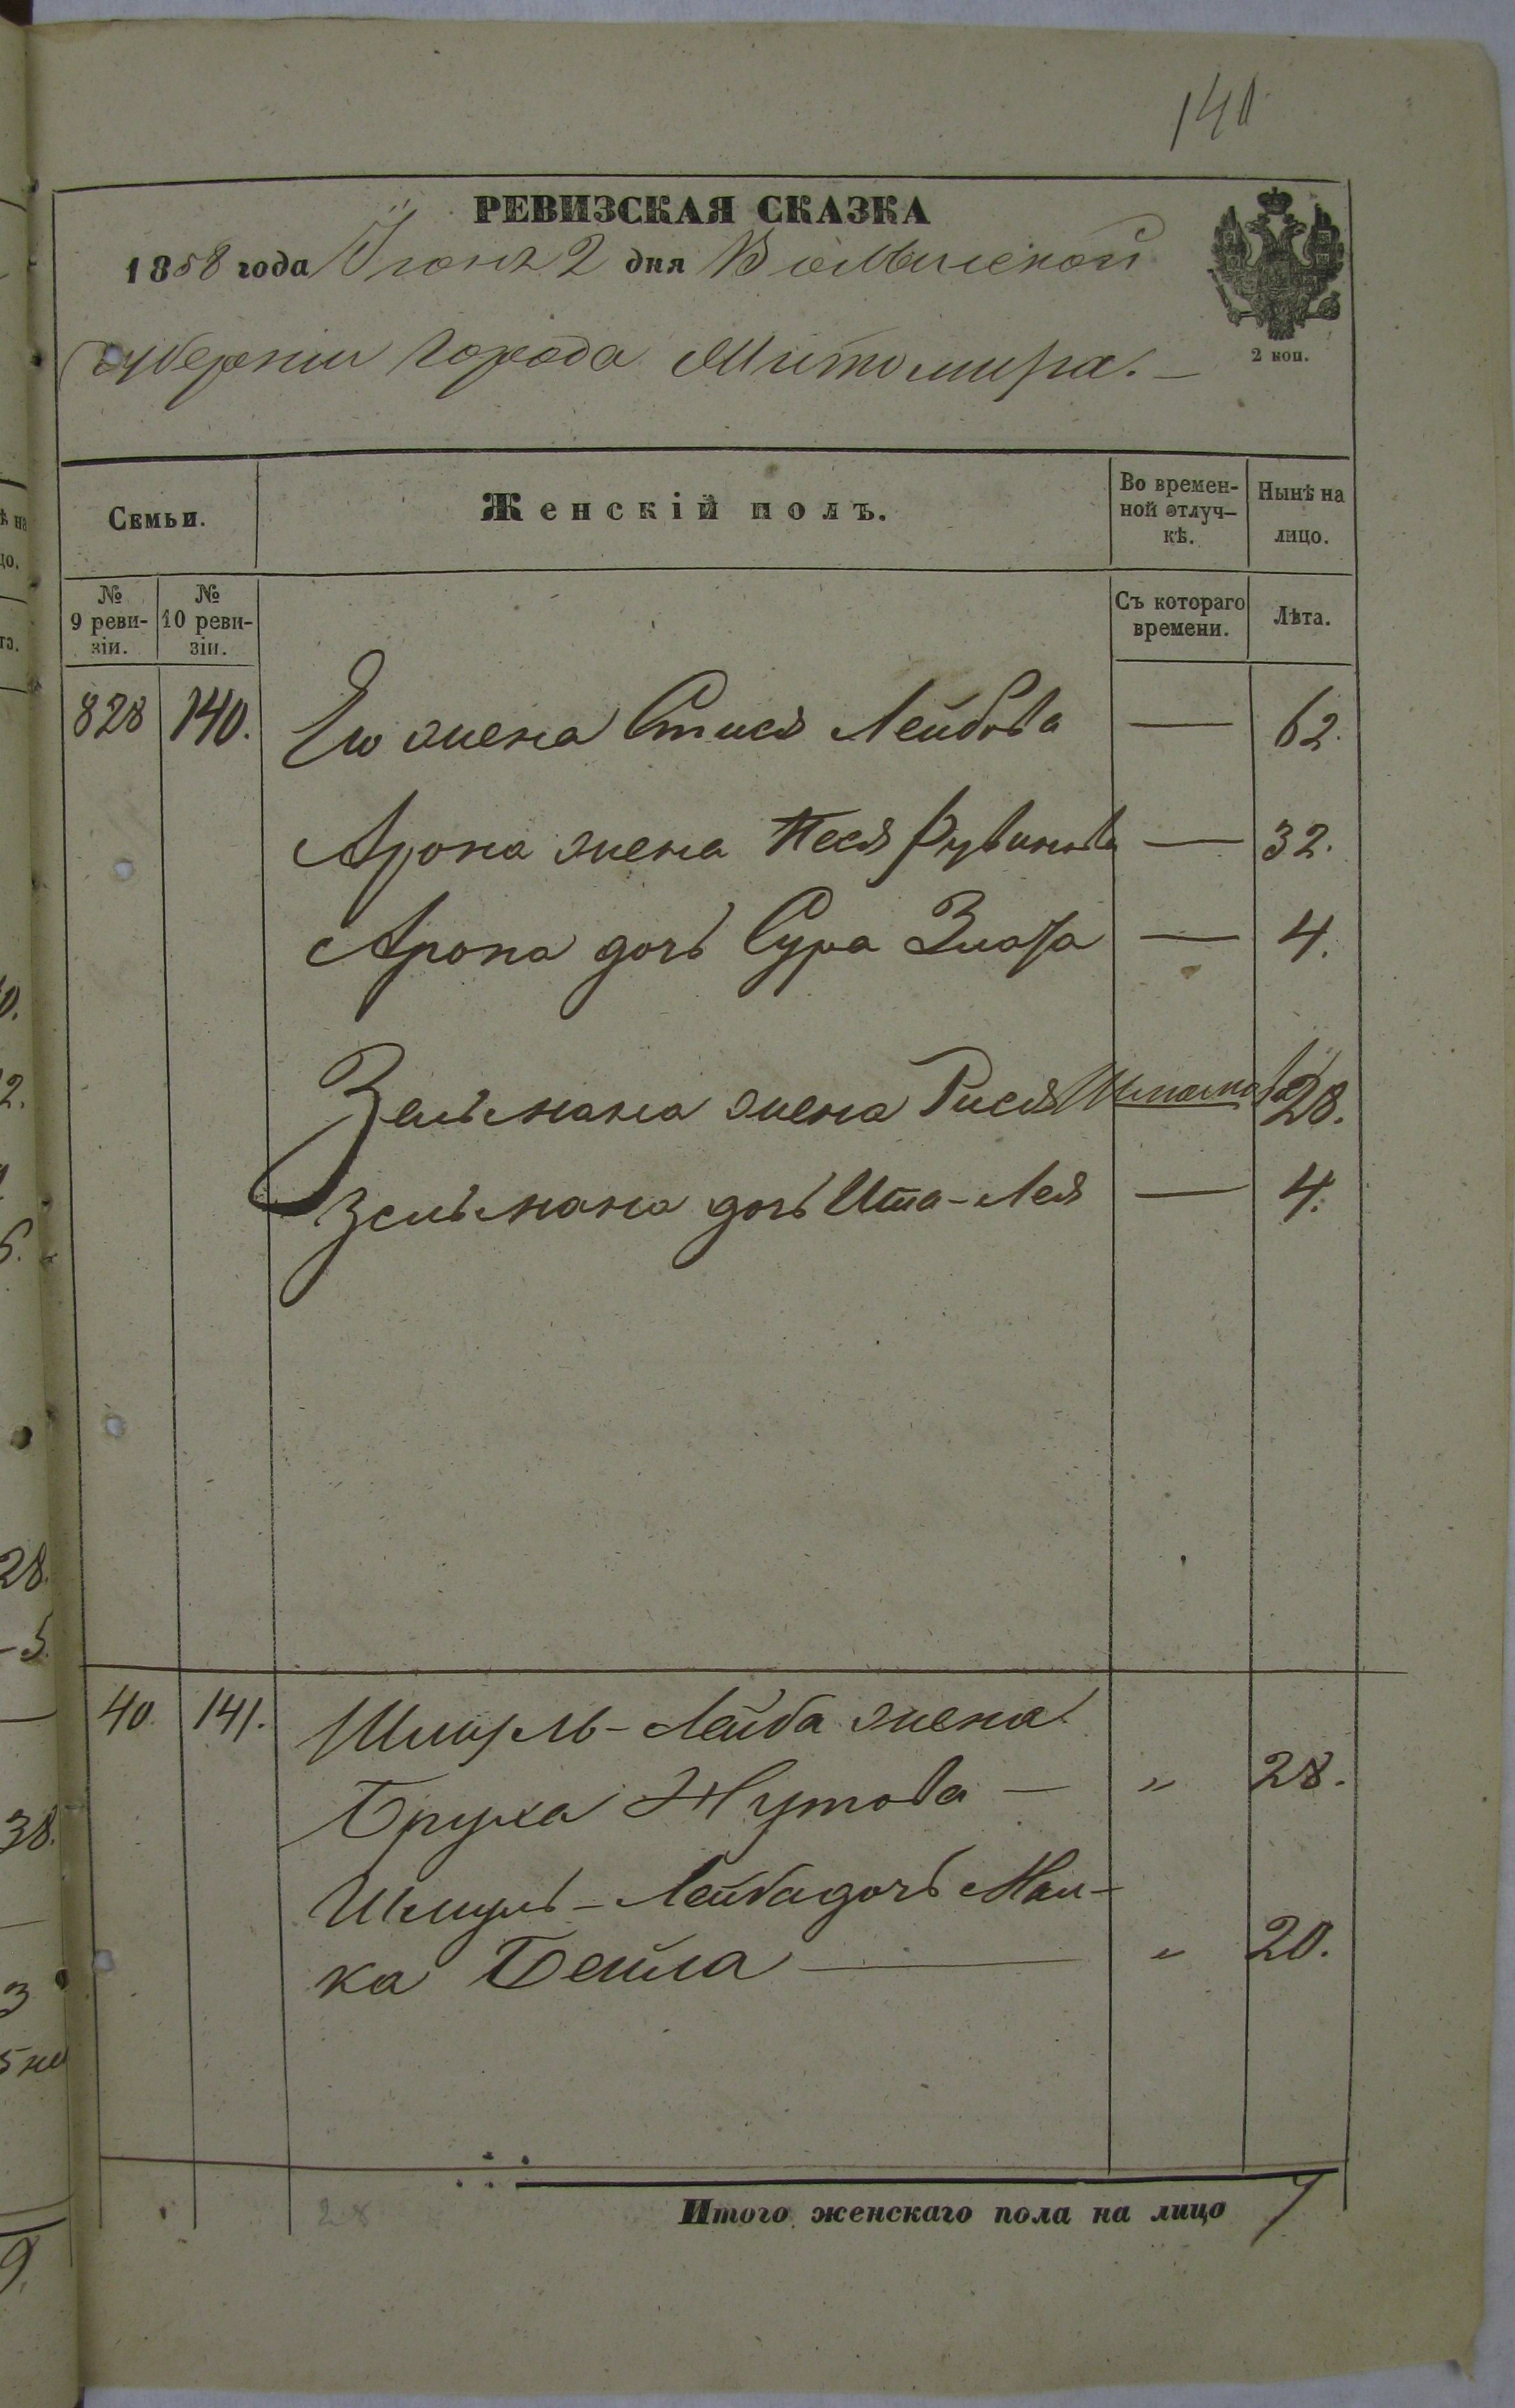 140
РЕВИЗСКАЯ СКАЗКА
1858 года Іюня 2 дня Волынской
Губерніи города Житомира.
2 коп.
Семьи.
Женскій полъ.
Во времен-
ной отлуч-
кѣ.
Нынѣ на
лицо.
№
9 реви-
зіи.
№
10 реви-
зіи.
Съ котораго
времени.
Лѣта.
828 140. Его жена Стися Лейбова — 62.
Арона жена Песя Рувинова — 32.
Арона дочь Сура Злата — 4.
Зельмана жена Рися 28.
Зельмана дочь Ита-Лея — 4.
40. 141. Шмуль-Лейба жена
Бруха Нутова — „ 28.
Шмуль-Лейба дочь Мал-
ка Бейла — „ 20.
Итого женскаго пола на лицо 7
28